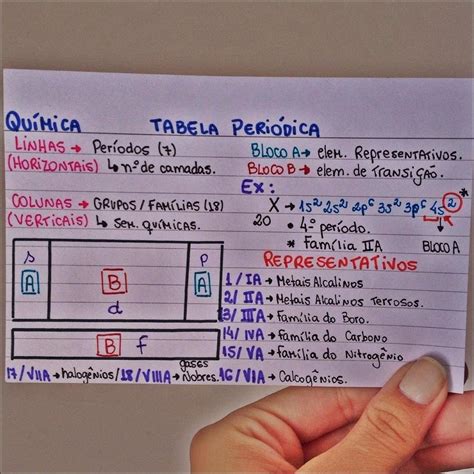 QUÍMICA TABELA PERIÓDICA
LINHAS → Períodos (7)
(HORIZONTAIS) ↳ nº de camadas.
COLUNAS → GRUPOS / FAMÍLIAS (18)
(VERTICAIS) ↳ Sem. químicas.
BLOCO A → elem. Representativos.
BLOCO B → elem. de TRANSIÇÃO.
Ex:
X → 1s² 2s² 2p⁶ 3s² 3p⁶ 4s² *
20 • 4º período. BLOCO A
* Família IIA
s p
A B A
d
B f
REPRESENTATIVOS
1 / IA → Metais Alcalinos
2 / IIA → Metais Alkalinos Terrosos.
13 / IIIA → Família do Boro.
14 / IVA → Família do Carbono
15 / VA → Família do Nitrogênio
16 / VIA → Calcogênios.
17 / VIIA → halogênios / 18 / VIIIA → gases Nobres.